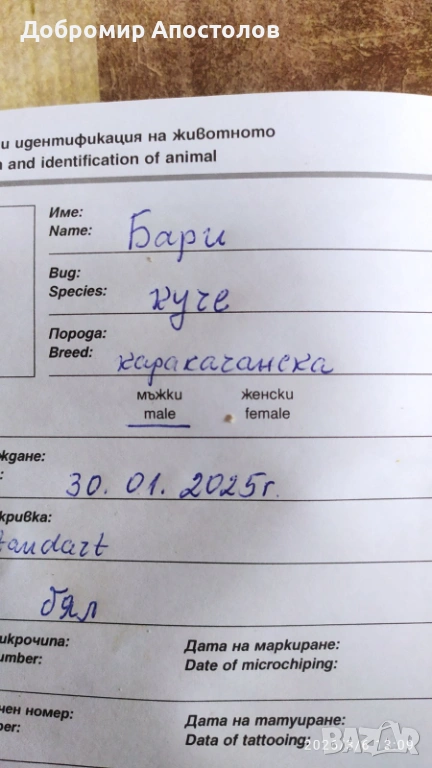 Добромир Апостолов
и идентификация на животното
and identification of animal
Име:
Name: Бари
Вид:
Species: куче
Порода:
Breed: каракачанска
мъжки женски
male female
ждане:
30. 01. 2025г.
кривка:
tandart
бял
икрочипа: Дата на маркиране:
umber: Date of microchiping:
чен номер: Дата на татуиране:
ber: Data of tattooing:
BAZAR